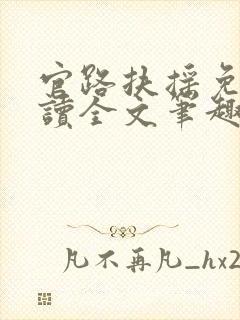 官路扶搖免
讀全文筆趣
凡不再凡_hx2